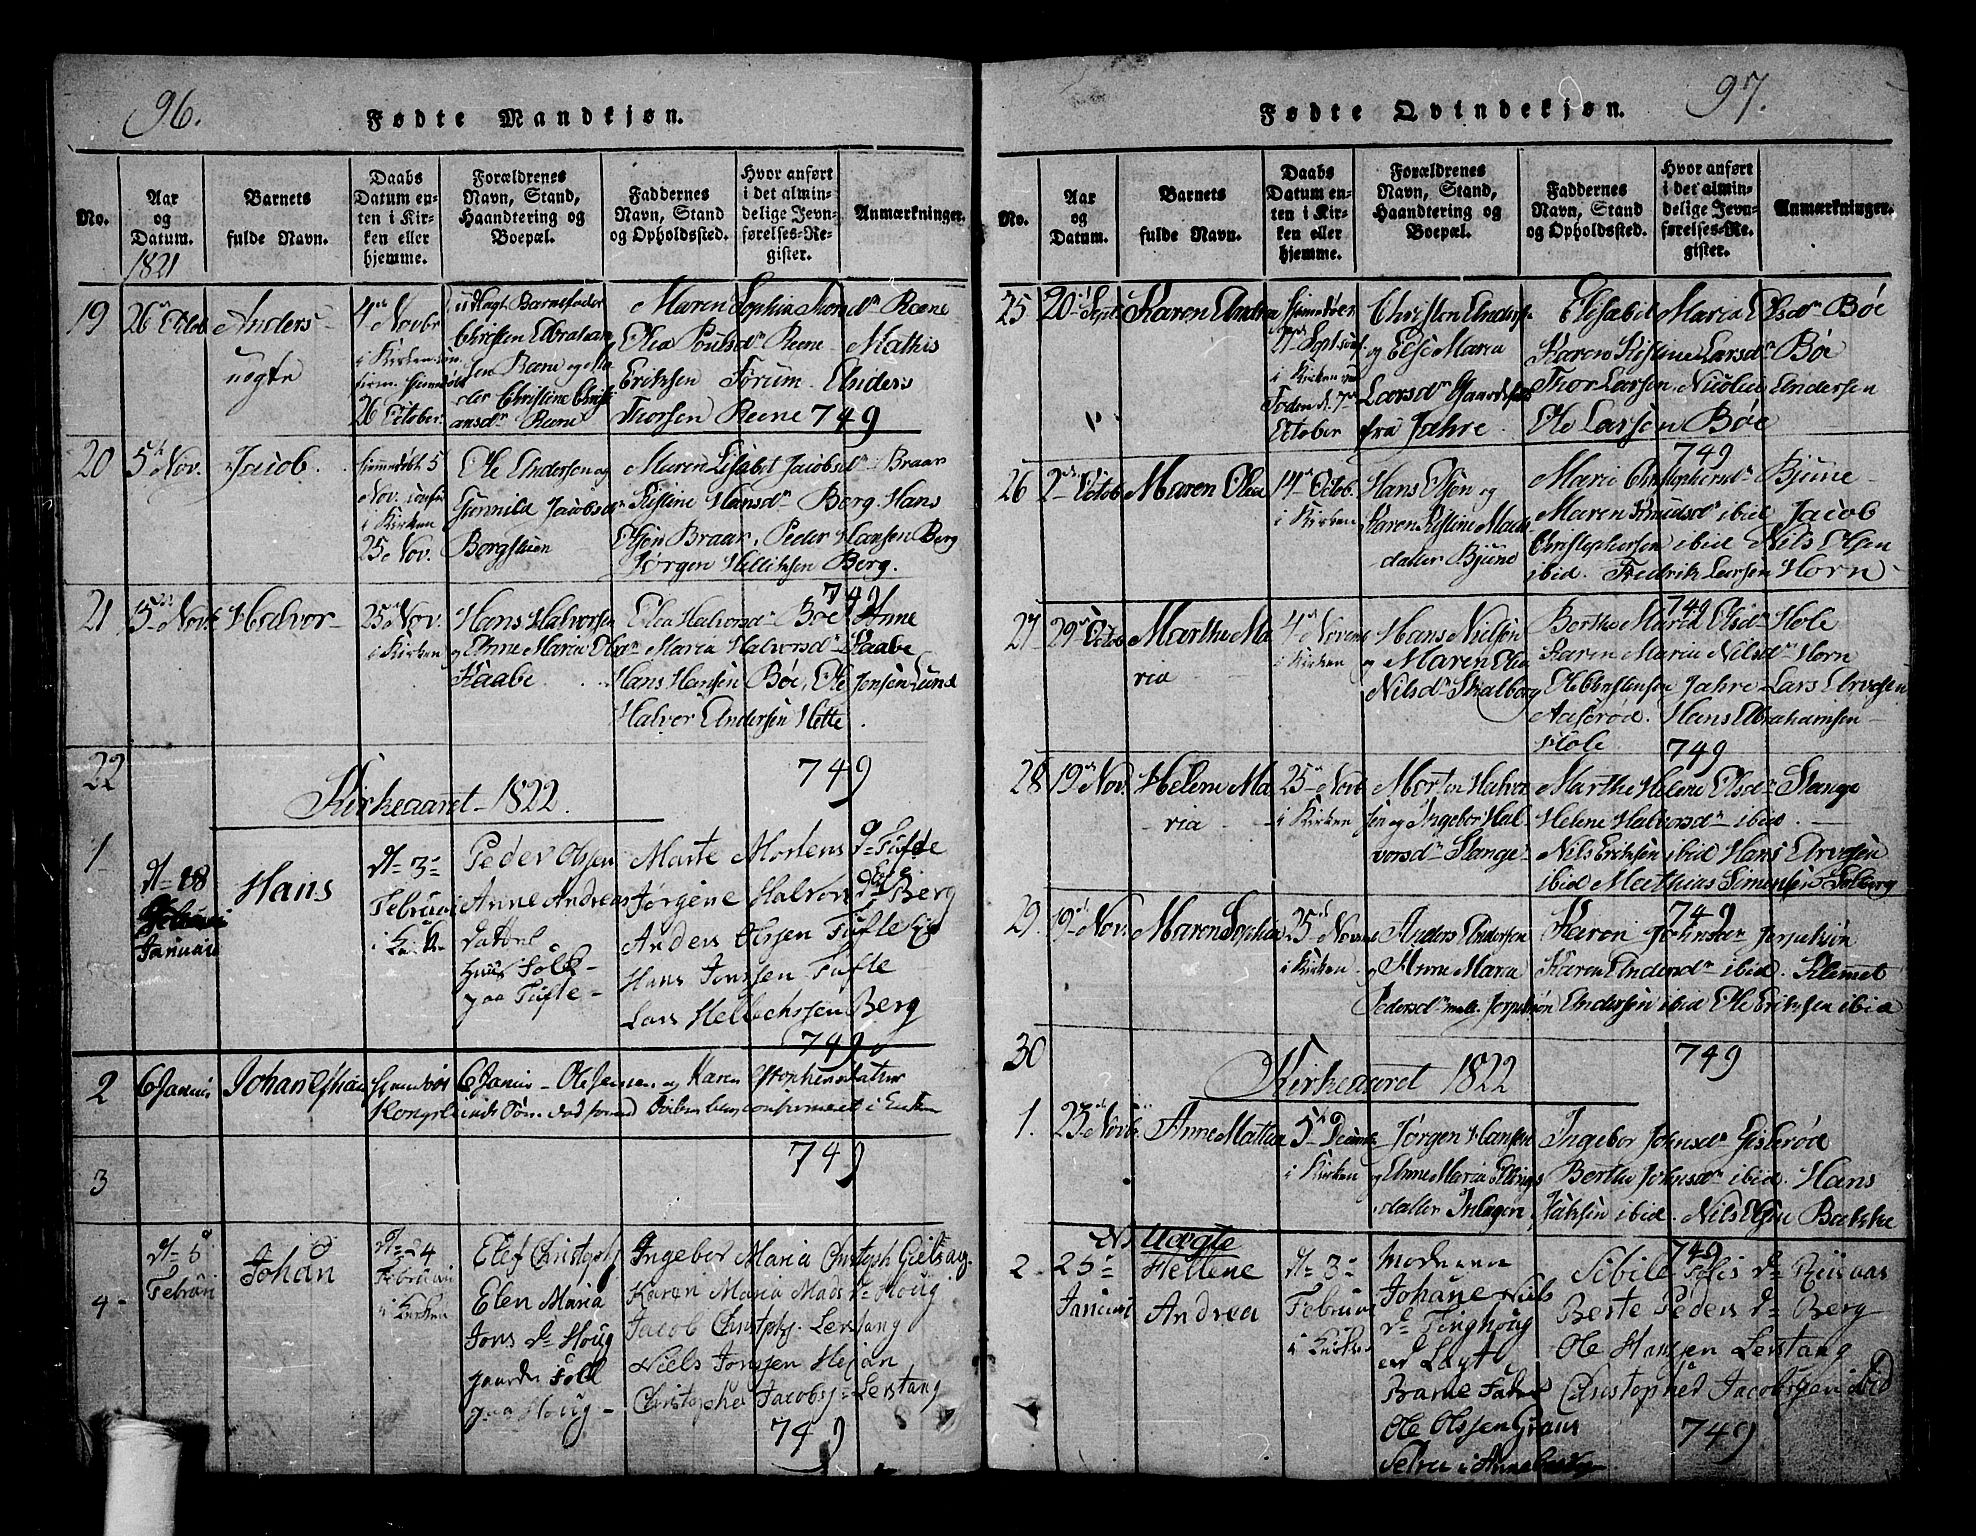 96.
Fødte Mandkjøn.
No.
Aar
og
Datum.
1821
Barnets
fulde Navn.
Daabs
Datum en-
ten i Kir-
ken eller
hjemme.
Forældrenes
Navn, Stand,
Haandtering og
Boepæl.
Faddernes
Navn, Stand
og Opholdssted.
Hvor anført
i det almin-
delige Jevn-
førelses-Re-
gister.
Anmærkninger.
19
26 Octob
Anders
uegte
4de Novbr
i Kirken
26 October
udlagt Barnefader
Christen Abraham
sen Reene
Christine Christi
ansdr Reene
Maren Sophia Thorsdr Reene
Olea Poulsdr Reene Mathis
Eriksen Forum Anders
Thorsen Reene 749
20
5te Nov.
Jacob
hiemedøbt 5
Nov.
i Kirken
25 Nov.
Ole Andersen og
Gunnild Jacobsdr
Bergstuen
Maren Lisabet Jacobsdr Braar
Kistine Hansdr Berg Hans
Olsen Braar, Peder Hansen Berg
Jørgen Helliksen Berg.
749
21
15 Novb
Halvor
25 Nov.
i Kirken
Hans Halvorsen
og Anne Maria Olsdr
Kaabe
Olea Halvorsdr Bøe Anne
Maria Halvorsdr Kaabe
Hans Hansen Bøe, Ole Jonsen Lund
Halvor Andersen Hette
749
22
Kirkeaaret 1822.
1
d. 18
Januari
Hans
d. 3
Februari
i Kirken
Peder Olssen
Anne Andreas
Datter
huus Folk
paa Tufte
Marte Mortens Dr Tufte
Jørgene Halvors Dr Berg
Anders Olssen Tufte
Hans Jonssen Tufte
Lars Hellechssen Berg
749
2
6 Januari
Johan
6 Januar Ole Jensen og Karen Stephensdatter
749
3
4
d. 5
Februari
Johan
d. 24
Februari
i Kirken
Elef Christophs
Elen Maria
Jons Dr Houg
gaarder Folk
paa Houg
Ingebor Maria Christoph
Karen Maria Mads Dr Houg
Jacob Christophs. Lerstang
Niels Jonssen
Christopher Jacobs. Lerstang
749
97.
Fødte Qvindekjøn.
No.
Aar
og
Datum.
Barnets
fulde Navn.
Daabs
Datum en-
ten i Kir-
ken eller
hjemme.
Forældrenes
Navn, Stand,
Haandtering og
Boepæl.
Faddernes
Navn, Stand
og Opholdssted.
Hvor anført
i det almin-
delige Jevn-
førelses-Re-
gister.
Anmærkninger.
25
20 Sept
Karen Andrea
i Kirken
October
Christen Anders
og Else Maria
Larsdr Gaardfolk
fra Jahre.
Elisabet Maria Olsdr Bøe
Karen Kistine Larsdr Bøe
Thor Larsen Nicolai Andersen
Ole Larsen Bøe
749
26
2 Octob
Maren Olea
14 Octob.
i Kirken
Hans Olsen og
Karen Kistine Mads
datter Bjune
Marie Christophersdr Bjune
Maren Knudsdr ibid Jacob
Christophersen ibid Nils Olsen
ibid. Fredrik Larsen Horn
749
27
29 Octob
Marthe Ma
ria
4 Novem
i Kirken
Hans Nielsen
og Maren Olea
Nilsdr Skalberg
Berthe Maria Olsdr Hole
Karen Maria Nilsdr Horn
Ole Christensen Jahre Lars Arvesen
Aaserød. Hans Abrahamsen
Hole
749
28
19 Nov
Helene Ma
ria
25 Novb
i Kirken
Morten Halvor
sen og Ingebor Hal
vorsdr Stange
Marthe Helene Olsdr Stange
Helene Halvorsdr ibid.
Nils Eriksen ibid Hans Arvesen
ibid Mathias Simensen Solberg
749
29.
19 Nov.
Maren Sophia
25 Novem
i Kirken
Anders Andersen
og Anne Maria
Pedersdr
Karen Johnsdr
Karen Andersdr ibid. Klemet
Andersen ibid Ole Eriksen ibid
749
30
Kirkeaaret 1822
1.
23 Novb
Anne Mathea
5 Decem
i Kirken
Jørgen Hansen
og Anne Maria Ellings
datter
Ingebor Johnsdr Gisterød
Berthe Johnsdr ibid. Hans
ibid. Nils Olsen Bakke
749
2
25
Januari
Uægte
Hellene
Andrea
d. 3
Februari
i Kirken
Moderen
Johane Niels
Dr Tinghoug
ud Lagt
Barne Fader
Ole Olssen
Sibile Dr
Berte Peders Dr Berg
Ole Hanssen Lerstang
Christopher Jacobssen ibid
749